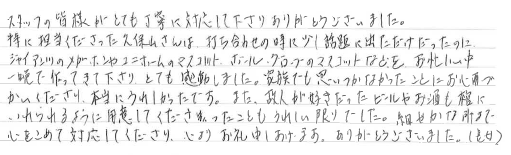 スタッフの皆様がとても丁寧に対応して下さりありがとうございました。
特に担当くださった久保さんは、打ち合わせの時に少し話題に出ただけだったのに
ジャイアンツのメガホンやユニホームのマスコット、ボール・グローブのマスコットなどを、お忙しい中
一晩で作ってきて下さり、とても感動しました。家族でも思いつかなかったことにお心遣い
かいくださり、本当にうれしかったです。また、故人が好きだったビールやお酒も棺に
いれられるように用意してくださったこともうれしい限りでした。細やかな所まで
心をこめて対応してくださり、心よりお礼申しあげます。ありがとうございました。